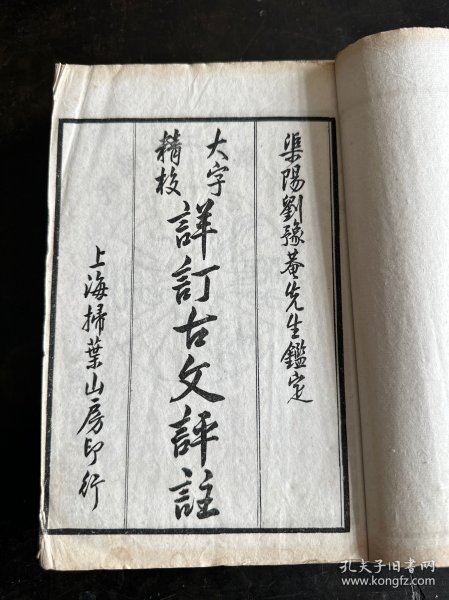 渠陽劉豫菴先生鑑定
大字
精校
詳訂古文評註
上海掃葉山房印行
孔夫子旧书网
www.kongfz.com